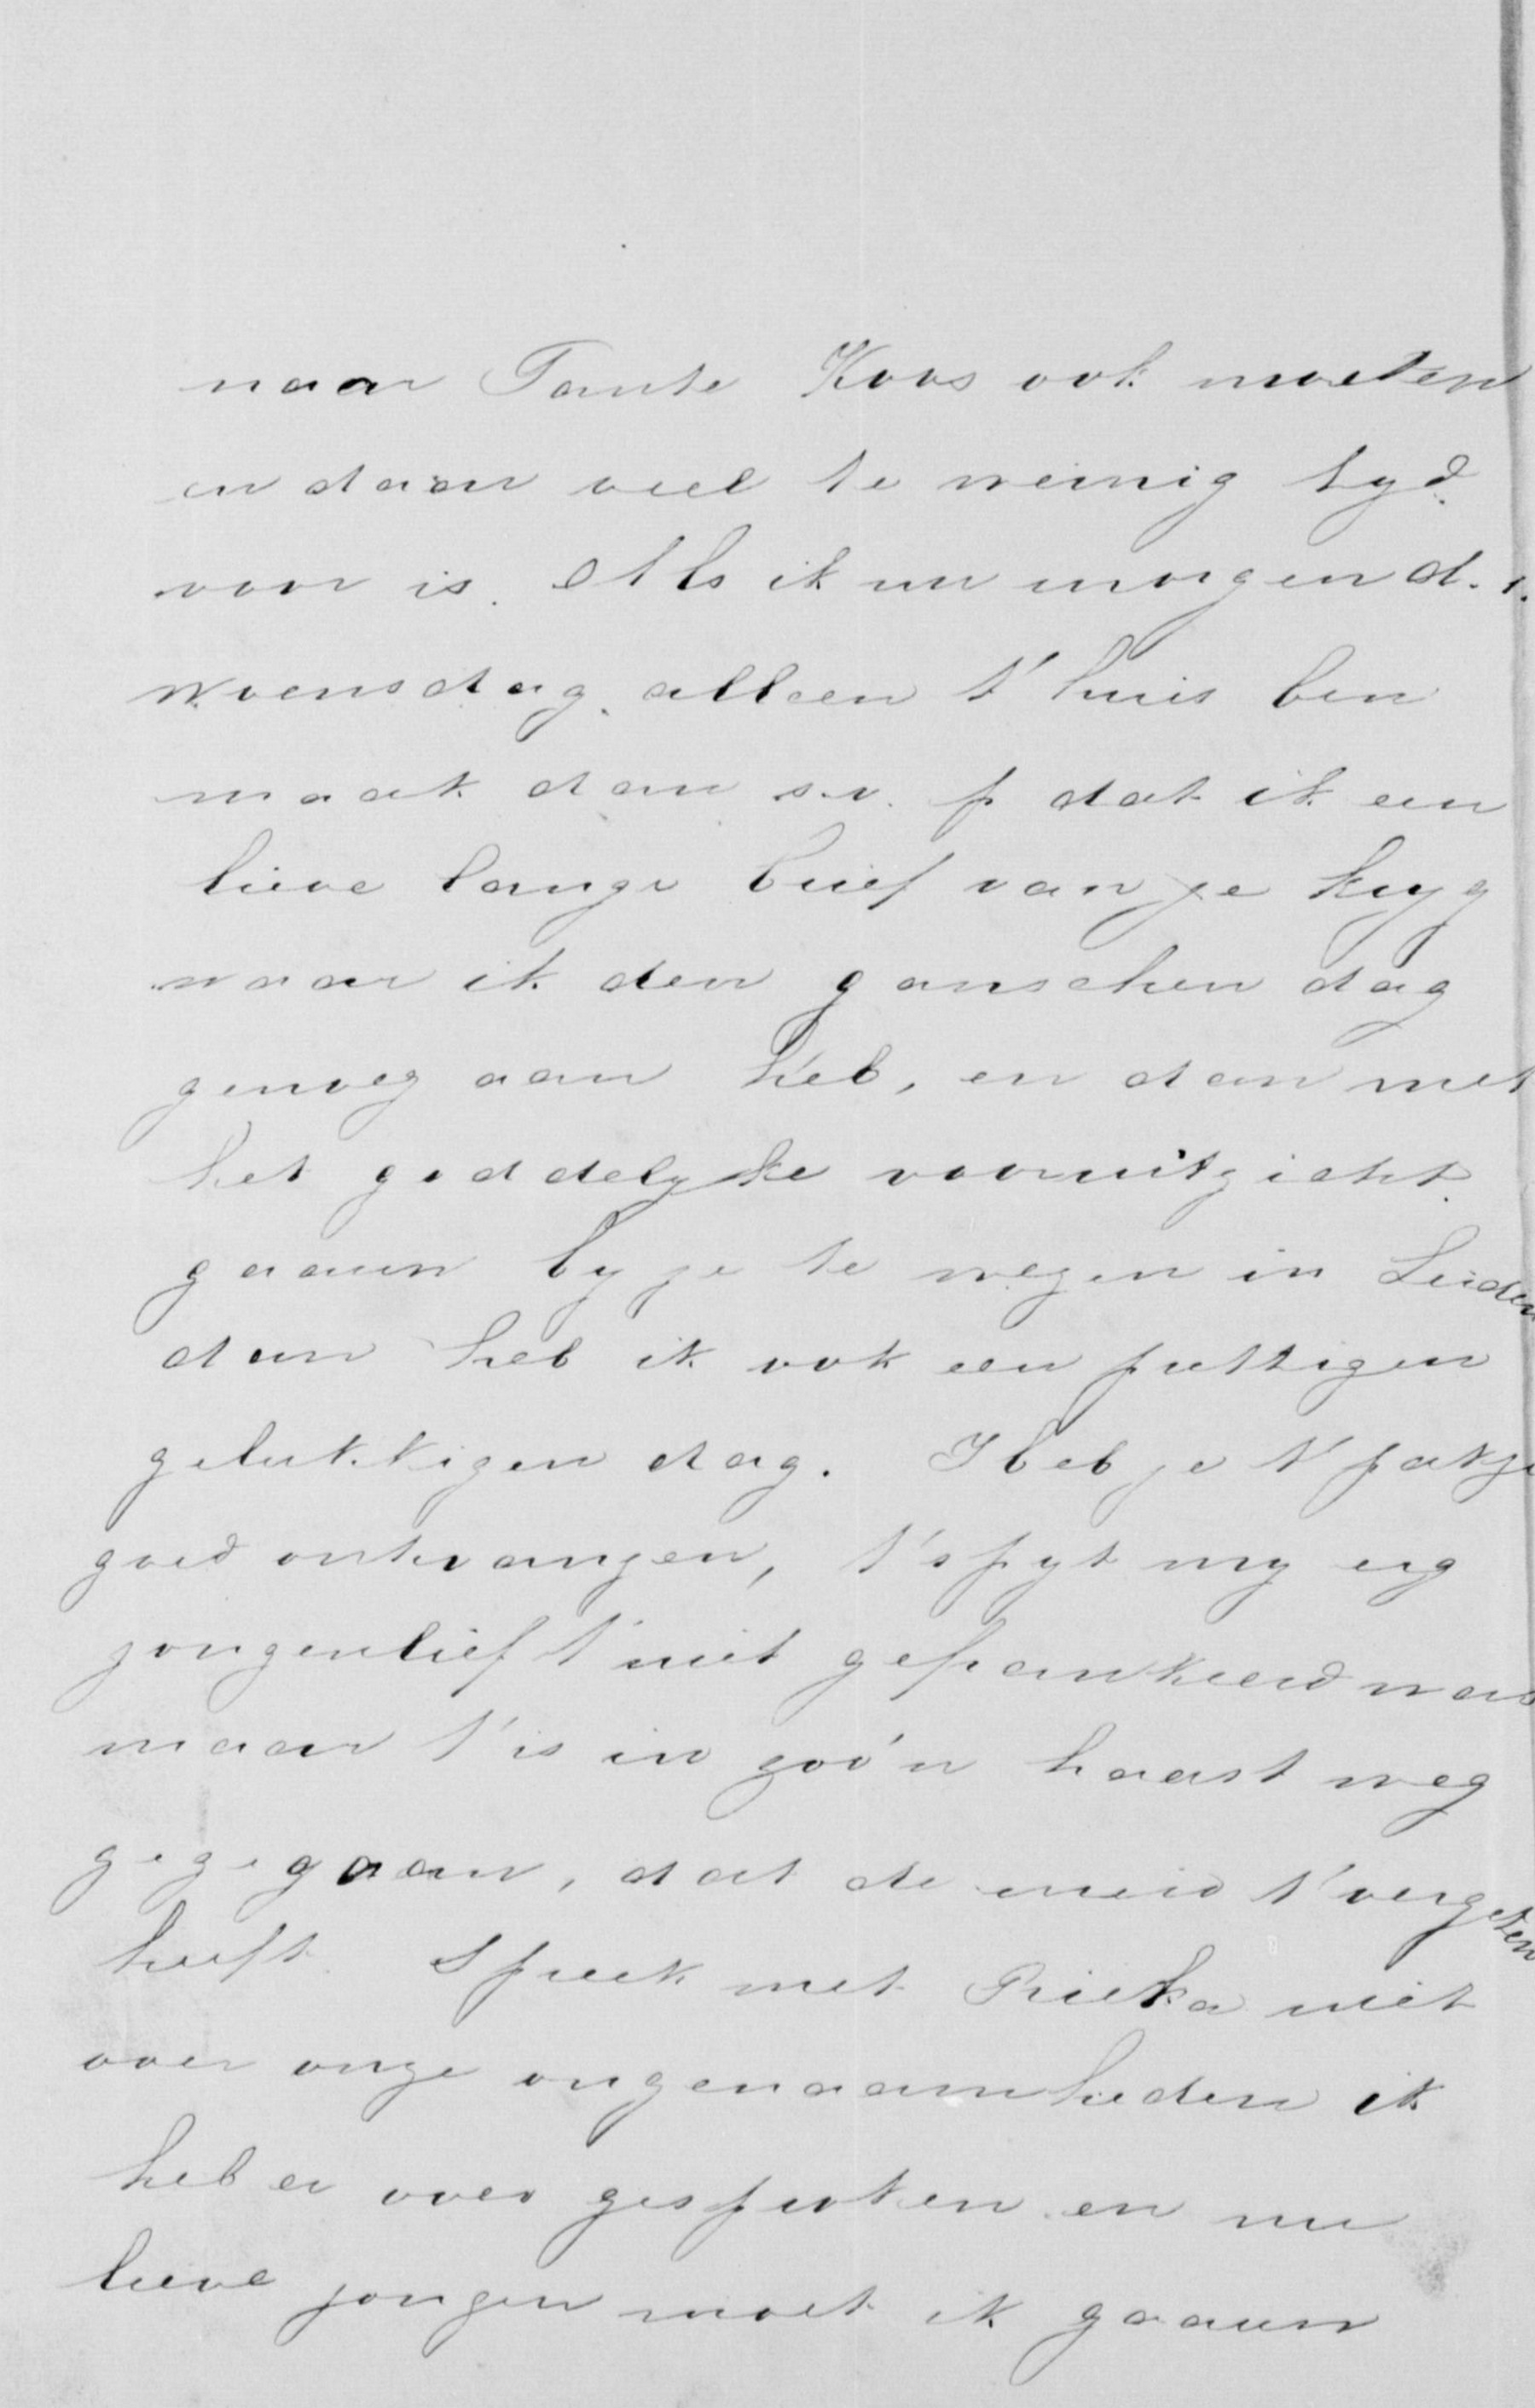 naar Tante Koos ook moeten
en daar veel te weinig tyd
voor is. Als ik nu morgen d.i.
woensdag. alleen t'huis ben
maak dan s.v.p dat ik een
lieve lange brief van je kryg
waar ik den ganschen dag
genoeg aan heb, en dan met
het goddelyke vooruitzicht
gaauw by je te wezen in Leiden
dan heb ik ook een prettigen
gelukkigen dag. Heb je t'pakje
goed ontvangen, t'spyt my erg
jongenlief t'niet gefrankeerd was
maar t'is in zoo'n haast weg
gegegaan, dat de meid t'vergeten
heeft. Spreek met Rieka niet
over onze ongenaamheden ik
heb er over gesproken en nu
lieve jongen moet ik gaauw